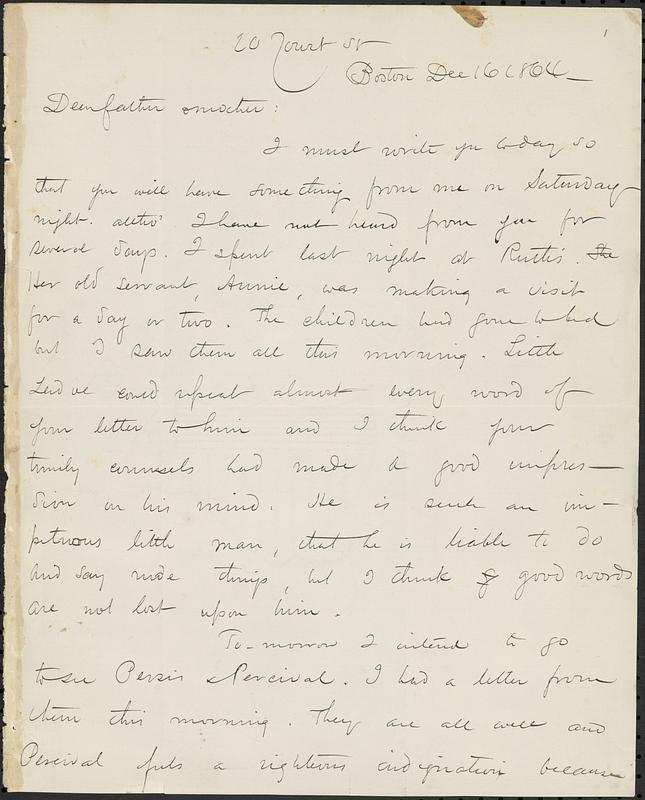 1
20 Court St
Boston Dec 16 1864
Dear father & mother:
I must write you today so
that you will have something from me on Saturday
night. altho' I have not heard from you for
several days. I spent last night at Ruth's. The
Her old servant, Annie, was making a visit
for a day or two. The children had gone to bed
but I saw them all this morning. Little
could repeat almost every word of
your letter to him and I think your
timely counsels had made a good impres-
sion on his mind. He is such an im-
petuous little man, that he is liable to do
and say rude things, but I think good words
are not lost upon him.
To-morrow I intend to go
to see Persis & Percival. I had a letter from
them this morning. They are all well and
Percival feels a righteous indignation because